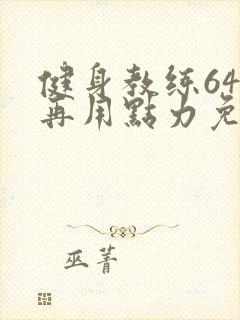 健身教练64
再用點力免
巫菁